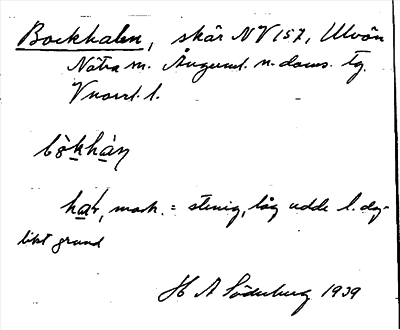 Bockhalen, skär NV 157, Ulvön
Nätra sn. Ångerml. n. doms. tg.
Vnorrl. l.
bòkhàn
har, mask. = stenig, låg udde l. dy-
likt grund
H A Söderberg 1939